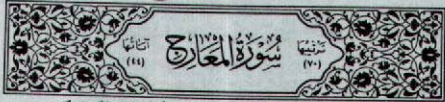 ترتيبها (٧٠) سُورَةُ المَعَارِجِ آياتها (٤٤)